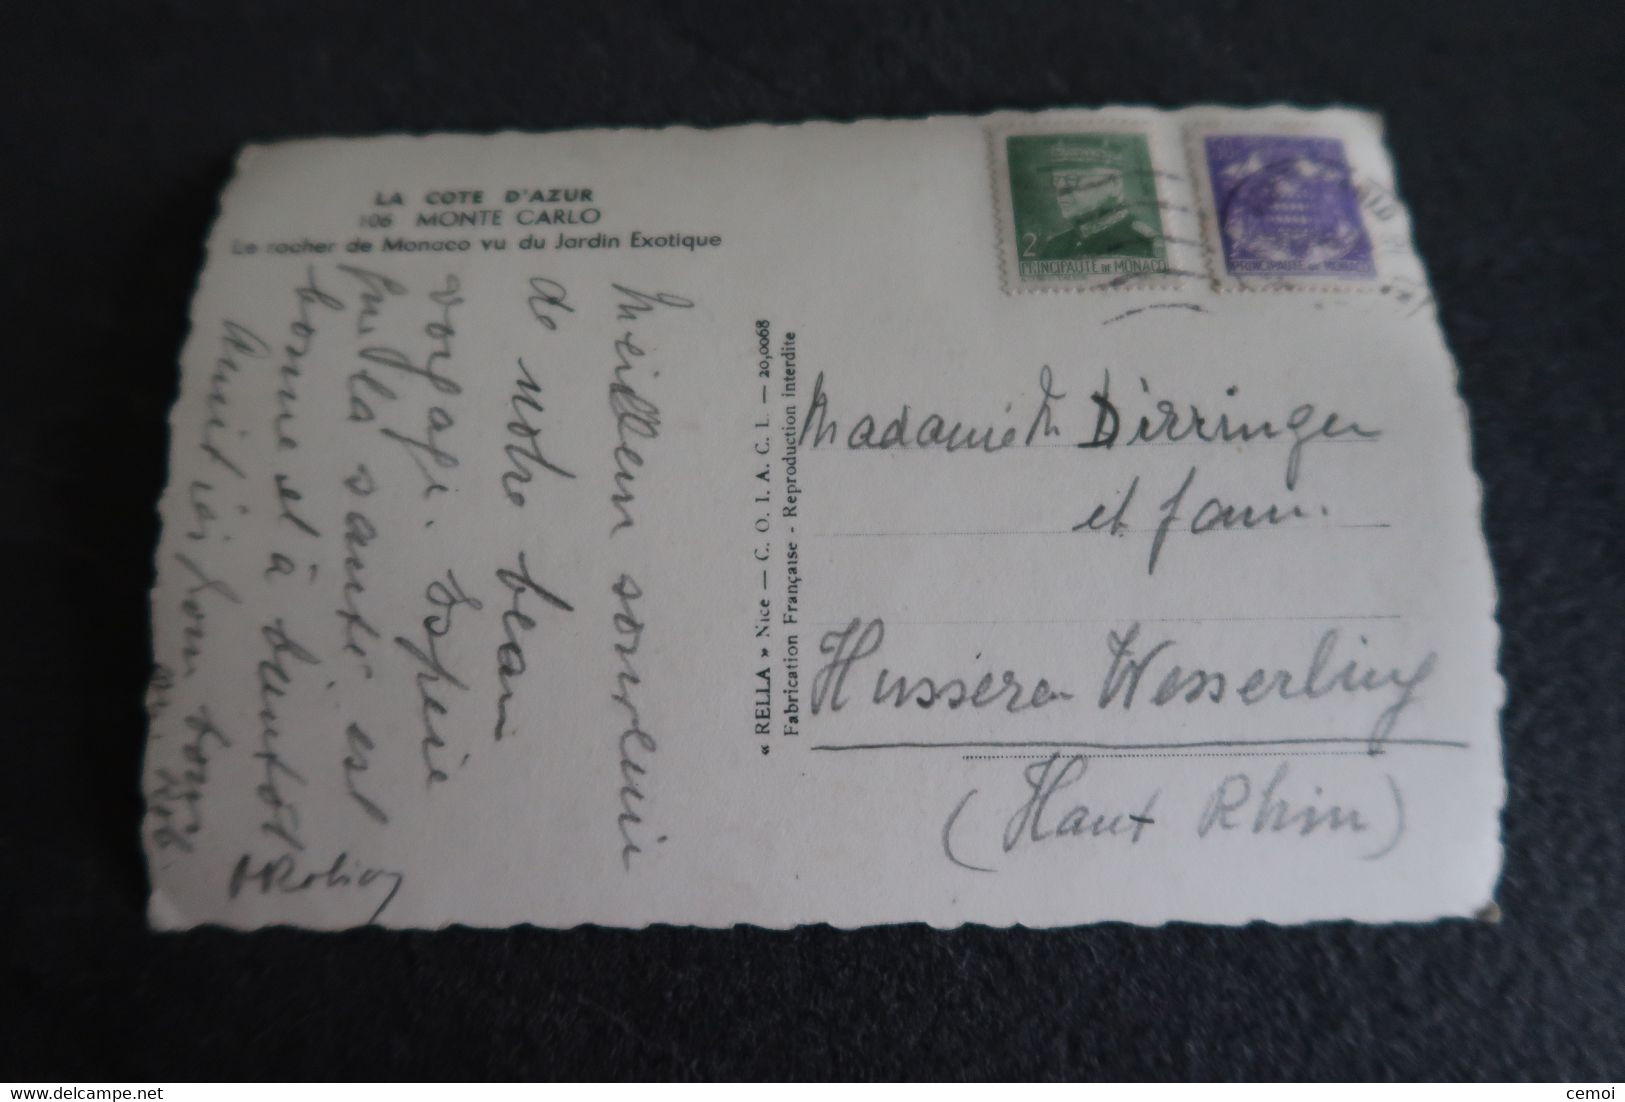 LA COTE D'AZUR
106 MONTE CARLO
Le rocher de Monaco vu du Jardin Exotique
Meilleurs souvenirs
de notre beau
voyage. Espère
que la santé est
bonne et à bientôt
Amitiés pour tous
« RELLA » Nice — C. O. I. A. C. L. — 20,0068
Fabrication Française - Reproduction interdite
2
PRINCIPAUTÉ DE MONACO
PRINCIPAUTÉ DE MONACO
Madame M Dirringer
et fam.
Husseren Wesserling
(Haut Rhin)
delcampe.net
cemoi